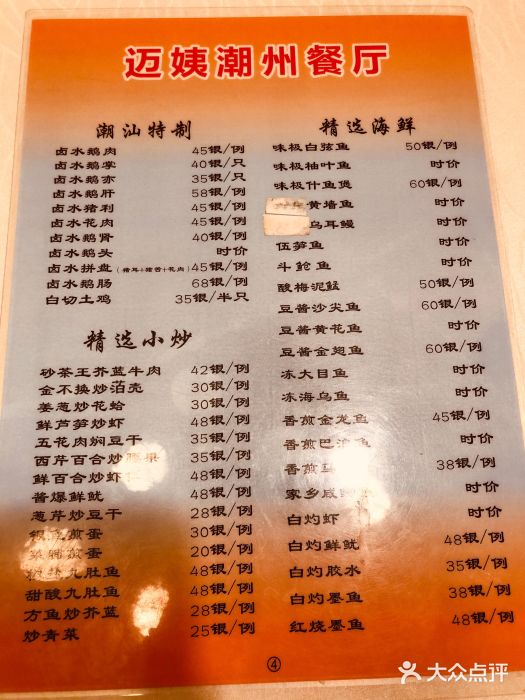 迈姨潮州餐厅
潮汕特制
卤水鹅肉 45银/例
卤水鹅掌 40银/只
卤水鹅亦 35银/只
卤水鹅肝 58银/例
卤水猪利 45银/例
卤水花肉 45银/例
卤水鹅肾 40银/例
卤水鹅头 时价
卤水拼盘(猪耳+猪舌+花肉) 45银/例
卤水鹅肠 68银/例
白切土鸡 35银/半只
精选小炒
砂茶王芥蓝牛肉 42银/例
金不换炒泊壳 30银/例
姜葱炒花蛤 30银/例
鲜芦笋炒虾 48银/例
五花肉焖豆干 35银/例
西芹百合炒腰果 35银/例
鲜百合炒虾 48银/例
酱爆鲜鱿 48银/例
葱芹炒豆干 28银/例
煎蛋 30银/例
菜脯煎蛋 20银/例
九肚鱼 48银/例
甜酸九肚鱼 48银/例
方鱼炒芥蓝 28银/例
炒青菜 25银/例
精选海鲜
味极白弦鱼 50银/例
味极柚叶鱼 时价
味极什鱼煲 60银/例
黄墙鱼 时价
乌耳鳗 时价
伍笋鱼 时价
斗鲳鱼 时价
酸梅泥鯭 50银/例
豆酱沙尖鱼 60银/例
豆酱黄花鱼 时价
豆酱金䱛鱼 60银/例
冻大目鱼 时价
冻海乌鱼 时价
香煎金龙鱼 45银/例
香煎巴浪鱼 时价
香煎 38银/例
家乡咸 时价
白灼虾 时价
白灼鲜鱿 48银/例
白灼胶水 35银/例
白灼墨鱼 38银/例
红烧墨鱼 48银/例
④
大众点评